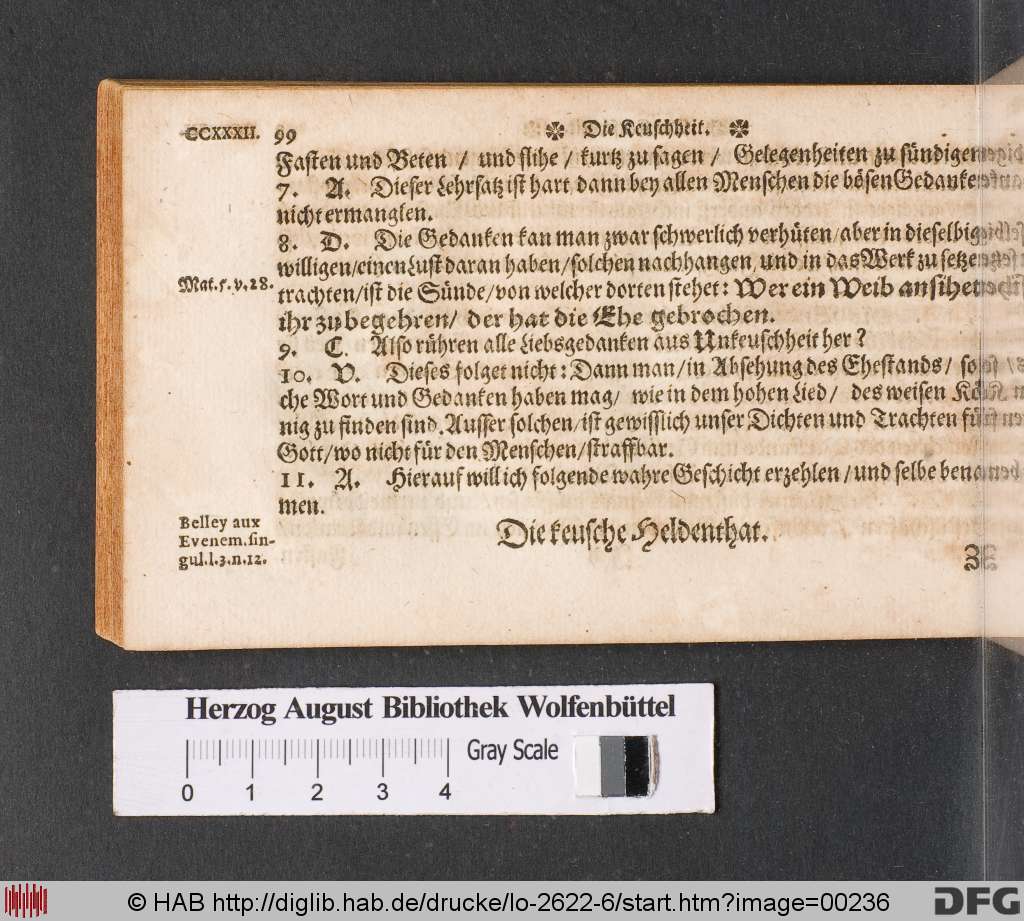 CCXXXII. 99 Die Keuschheit.
Fasten und Beten / und flihe / kurtz zu sagen / Gelegenheiten zu sündigen
7. A. Dieser Lehrsatz ist hart, dann bey allen Menschen die bösen Gedanken
nicht ermanglen.
8. D. Die Gedanken kan man zwar schwerlich verhüten / aber in dieselbig
willigen / einen Lust daran haben / solchen nachhangen, und in das Werk zu setzen
Mat. 5. v. 28.
trachten / ist die Sünde / von welcher dorten stehet: Wer ein Weib ansihet
ihr zu begehren / der hat die Ehe gebrochen.
9. C. Also rühren alle Liebsgedanken aus Unkeuschheit her?
10. V. Dieses folget nicht: Dann man / in Absehung des Ehestands / sol
che Wort und Gedanken haben mag / wie in dem hohen Lied / des weisen Kö
nig zu finden sind. Ausser solchen / ist gewisslich unser Dichten und Trachten für
Gott / wo nicht für den Menschen / straffbar.
11. A. Hierauf will ich folgende wahre Geschicht erzehlen / und selbe bena
men.
Belley aux
Evenem. sin-
gul. l. 3. n. 12.
Die keusche Heldenthat.
Herzog August Bibliothek Wolfenbüttel
Gray Scale
0 1 2 3 4
© HAB http://diglib.hab.de/drucke/lo-2622-6/start.htm?image=00236
DFG